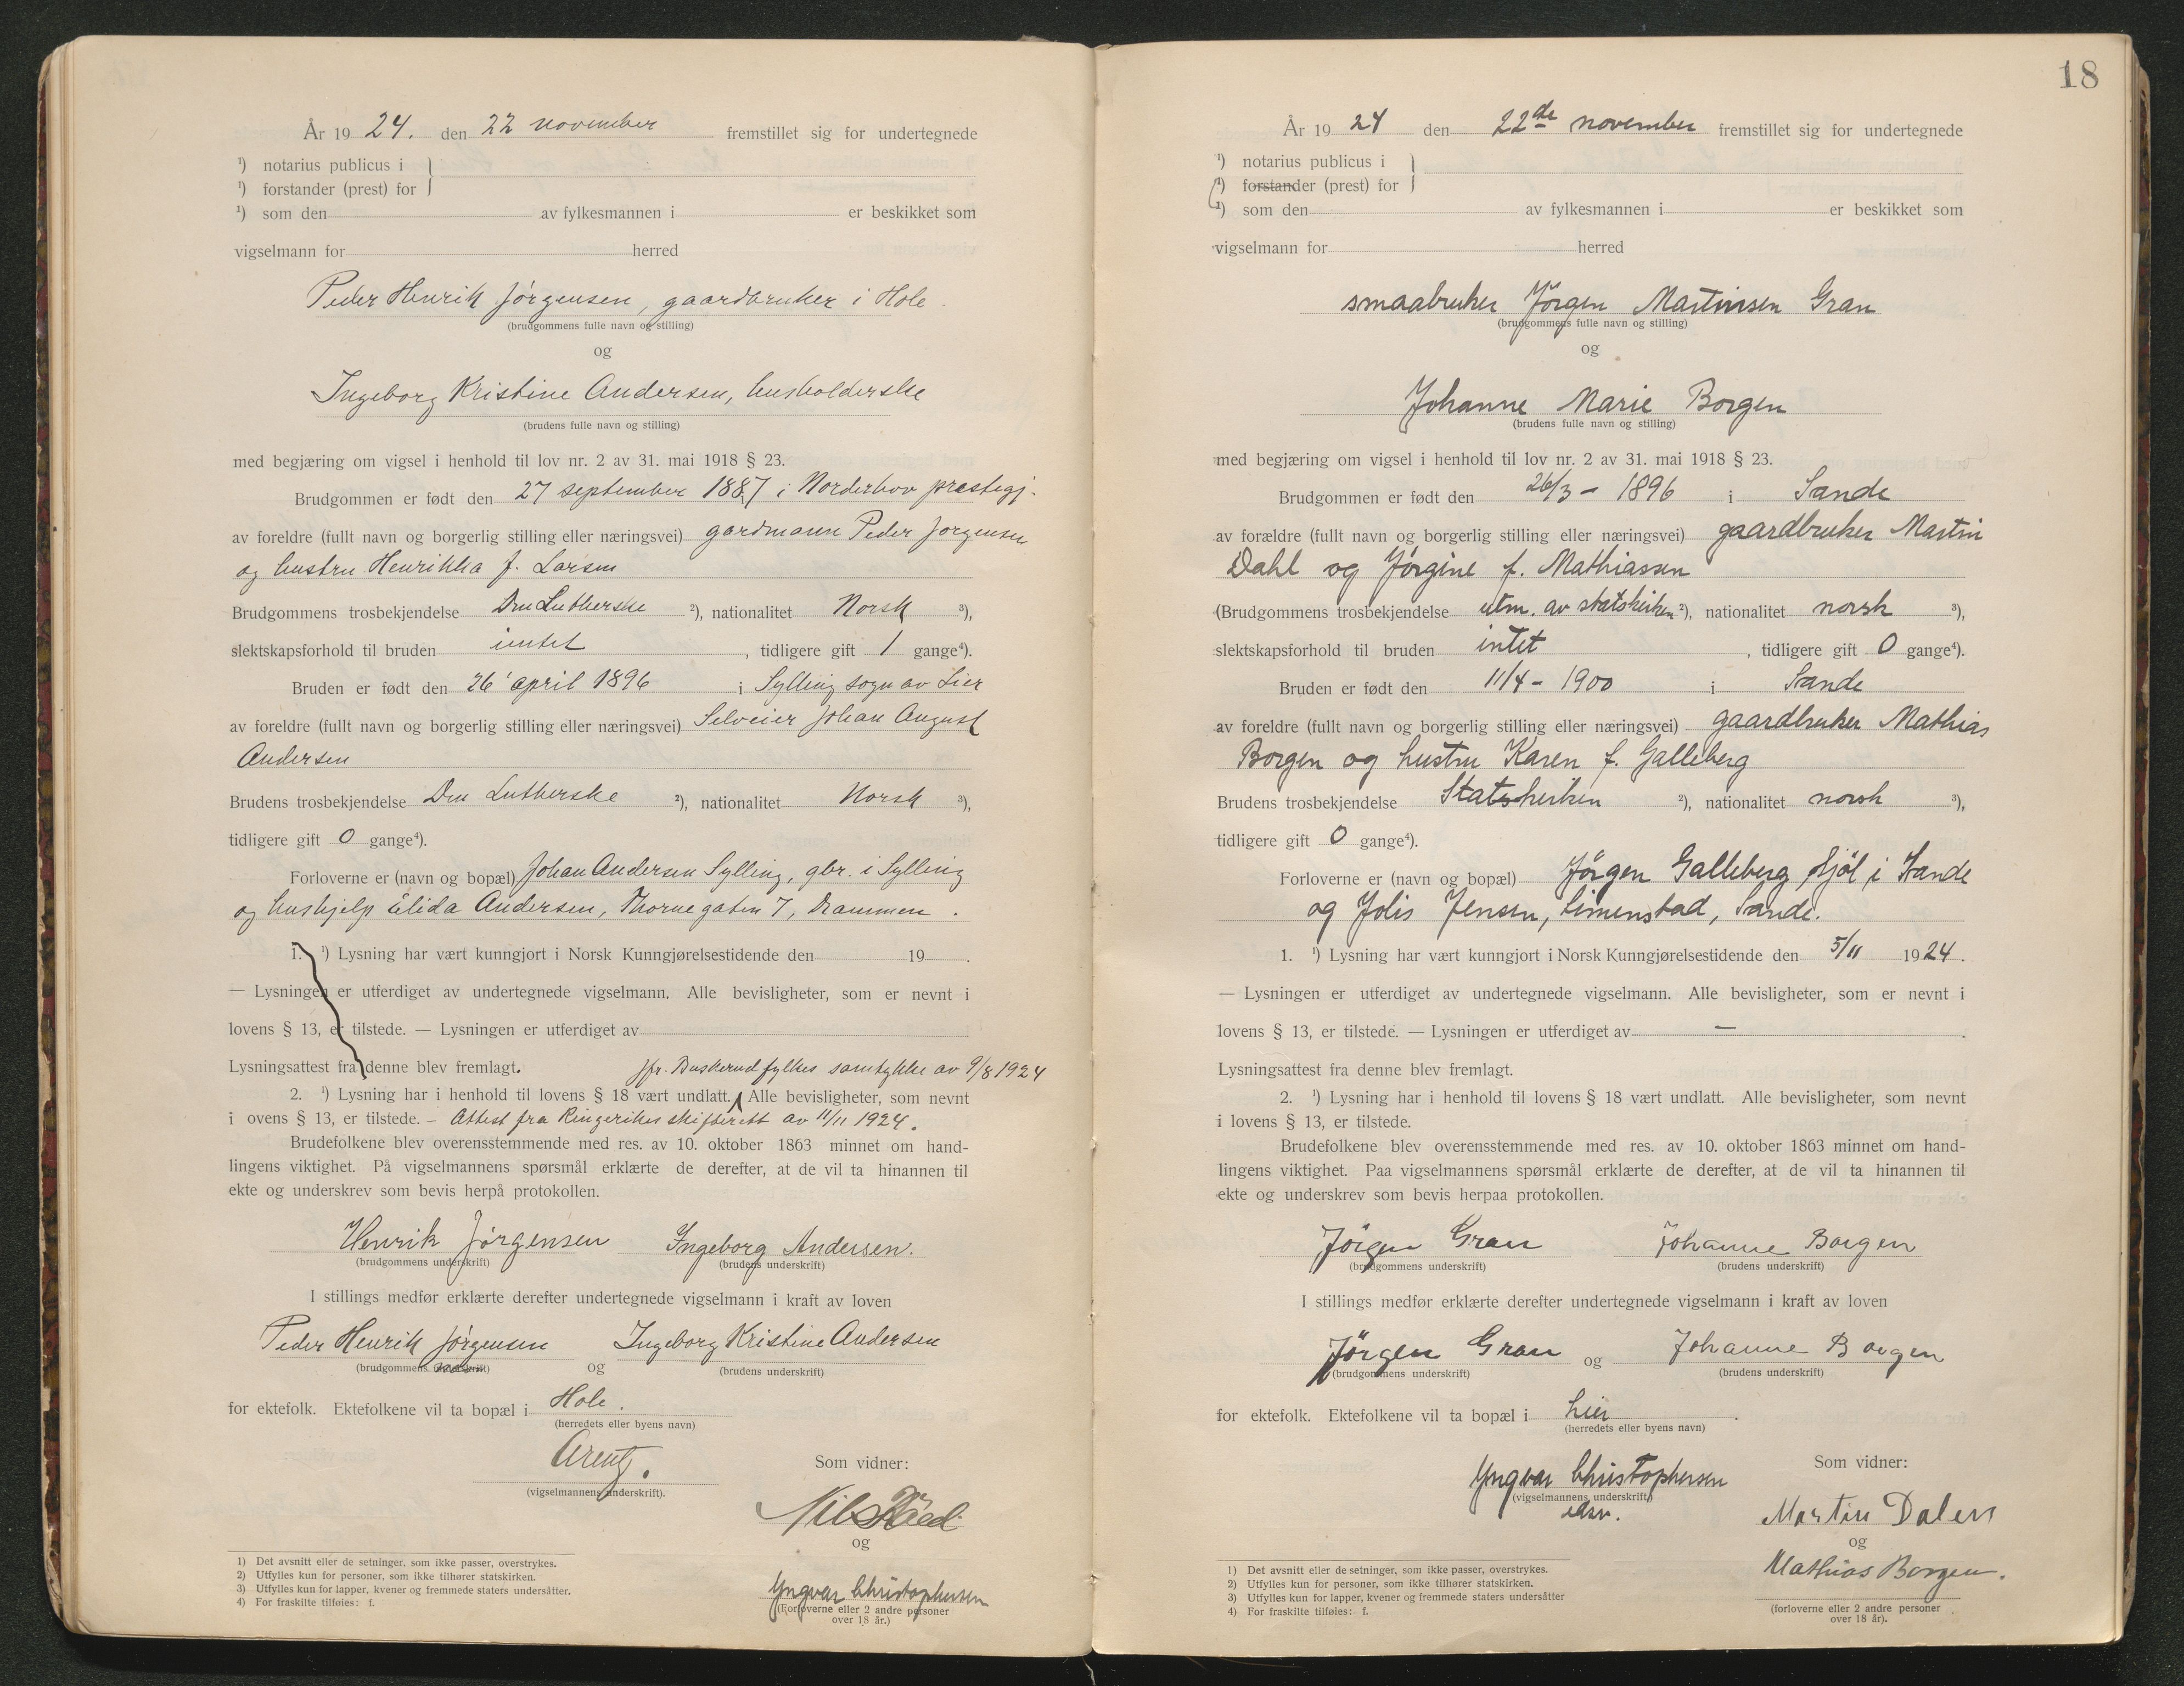 År 19 24. den 22 november fremstillet sig for undertegnede
¹) notarius publicus i
¹) forstander (prest) for
¹) som den av fylkesmannen i er beskikket som
vigselmann for herred
Peder Henrik Jørgensen, gaardbruker i Hole.
(brudgommens fulle navn og stilling)
og
Ingeborg Kristine Andersen, husholderske
(brudens fulle navn og stilling)
med begjæring om vigsel i henhold til lov nr. 2 av 31. mai 1918 § 23.
Brudgommen er født den 27 september 1887 i Norderhov prestegj.
av foreldre (fullt navn og borgerlig stilling eller næringsvei) gardmann Peder Jorgensen
og hustru Henrikka f. Larsen
Brudgommens trosbekjendelse Den Lutherske ²), nationalitet Norsk ³),
slektskapsforhold til bruden intet , tidligere gift 1 gange⁴).
Bruden er født den 26' april 1896 i Sylling sogn av Lier
av foreldre (fullt navn og borgerlig stilling eller næringsvei) Selveier Johan August
Andersen
Brudens trosbekjendelse Den Lutherske ²), nationalitet Norsk ³),
tidligere gift 0 gange⁴).
Forloverne er (navn og bopæl) Johan Andersen Sylling, gbr. i Sylling
og hushjelp Elida Andersen, Thornegaten 7, Drammen.
1. ¹) Lysning har vært kunngjort i Norsk Kunngjørelsestidende den 19 .
— Lysningen er utferdiget av undertegnede vigselmann. Alle bevisligheter, som er nevnt i
lovens § 13, er tilstede. — Lysningen er utferdiget av
Lysningsattest fra denne blev fremlagt. jfr. Buskerud fylkes samtykke av 9/8 1924
2. ¹) Lysning har i henhold til lovens § 18 vært undlatt. Alle bevisligheter, som nevnt
i ovens § 13, er tilstede. – Attest fra Ringerikes skifterett av 11/11 1924.
Brudefolkene blev overensstemmende med res. av 10. oktober 1863 minnet om hand-
lingens viktighet. På vigselmannens spørsmål erklærte de derefter, at de vil ta hinannen til
ekte og underskrev som bevis herpå protokollen.
Henrik Jørgensen Ingeborg Andersen.
(brudgommens underskrift) (brudens underskrift)
I stillings medfør erklærte derefter undertegnede vigselmann i kraft av loven
Peder Henrik Jørgensen og Ingeborg Kristine Andersen
(brudgommens underskrift) (brudens underskrift)
for ektefolk. Ektefolkene vil ta bopæl i Hole.
(herredets eller byens navn)
Arentz.
(vigselmannens underskrift).
Som vidner:
Nils
og
Yngvar Christophersen
(Forloverne eller 2 andre personer
over 18 år.)
1) Det avsnitt eller de setninger, som ikke passer, overstrykes.
2) Utfylles kun for personer, som ikke tilhører statskirken.
3) Utfylles kun for lapper, kvener og fremmede staters undersåtter.
4) For fraskilte tilføies: f.
18
År 19 24 den 22de november fremstillet sig for undertegnede
¹) notarius publicus i
¹) forstander (prest) for
¹) som den av fylkesmannen i er beskikket som
vigselmann for herred
smaabruker Jörgen Martinsen Gran
(brudgommens fulle navn og stilling)
og
Johanne Marie Borgen
(brudens fulle navn og stilling)
med begjæring om vigsel i henhold til lov nr. 2 av 31. mai 1918 § 23.
Brudgommen er født den 26/3 – 1896 i Sande
av forældre (fullt navn og borgerlig stilling eller næringsvei) gaardbruker Martin
Dahl og Jørgine f. Mathiassen
(Brudgommens trosbekjendelse utm. av statskirken ²), nationalitet norsk ³),
slektskapsforhold til bruden intet , tidligere gift 0 gange⁴).
Bruden er født den 11/4 – 1900 i Sande
av foreldre (fullt navn og borgerlig stilling eller næringsvei) gaardbruker Mathias
Borgen og hustru Karen f. Galleberg
Brudens trosbekjendelse Statskirken ²), nationalitet norsk ³),
tidligere gift 0 gange⁴).
Forloverne er (navn og bopæl) Jörgen Galleberg, i Sande
og Jolis Jensen, Limenstad, Sande.
1. ¹) Lysning har vært kunngjort i Norsk Kunngjørelsestidende den 5/11 1924.
— Lysningen er utferdiget av undertegnede vigselmann. Alle bevisligheter, som er nevnt i
lovens § 13, er tilstede. — Lysningen er utferdiget av — .
Lysningsattest fra denne blev fremlagt.
2. ¹) Lysning har i henhold til lovens § 18 vært undlatt. Alle bevisligheter, som nevnt
i lovens § 13, er tilstede.
Brudefolkene blev overensstemmende med res. av 10. oktober 1863 minnet om hand-
lingens viktighet. Paa vigselmannens spørsmål erklærte de derefter, at de vil ta hinannen til
ekte og underskrev som bevis herpaa protokollen.
Jörgen Gran Johanne Borgen
(brudgommens underskrift) (brudens underskrift)
I stillings medfør erklærte derefter undertegnede vigselmann i kraft av loven
Jörgen Gran og Johanne Borgen
(brudgommens underskrift) (brudens underskrift)
for ektefolk. Ektefolkene vil ta bopæl i Lier .
(herredets eller byens navn)
Yngvar Christophersen
(vigselmannens underskrift)
Som vidner:
Martin Dalen
og
Mathias Borgen.
(forloverne eller 2 andre personer
over 18 år).
1) Det avsnitt eller de setninger, som ikke passer, overstrykes.
2) Utfylles kun for personer, som ikke tilhører statskirken.
3) Utfylles kun for lapper, kvener og fremmede staters undersåtter
4) For fraskilte tilføies: f.